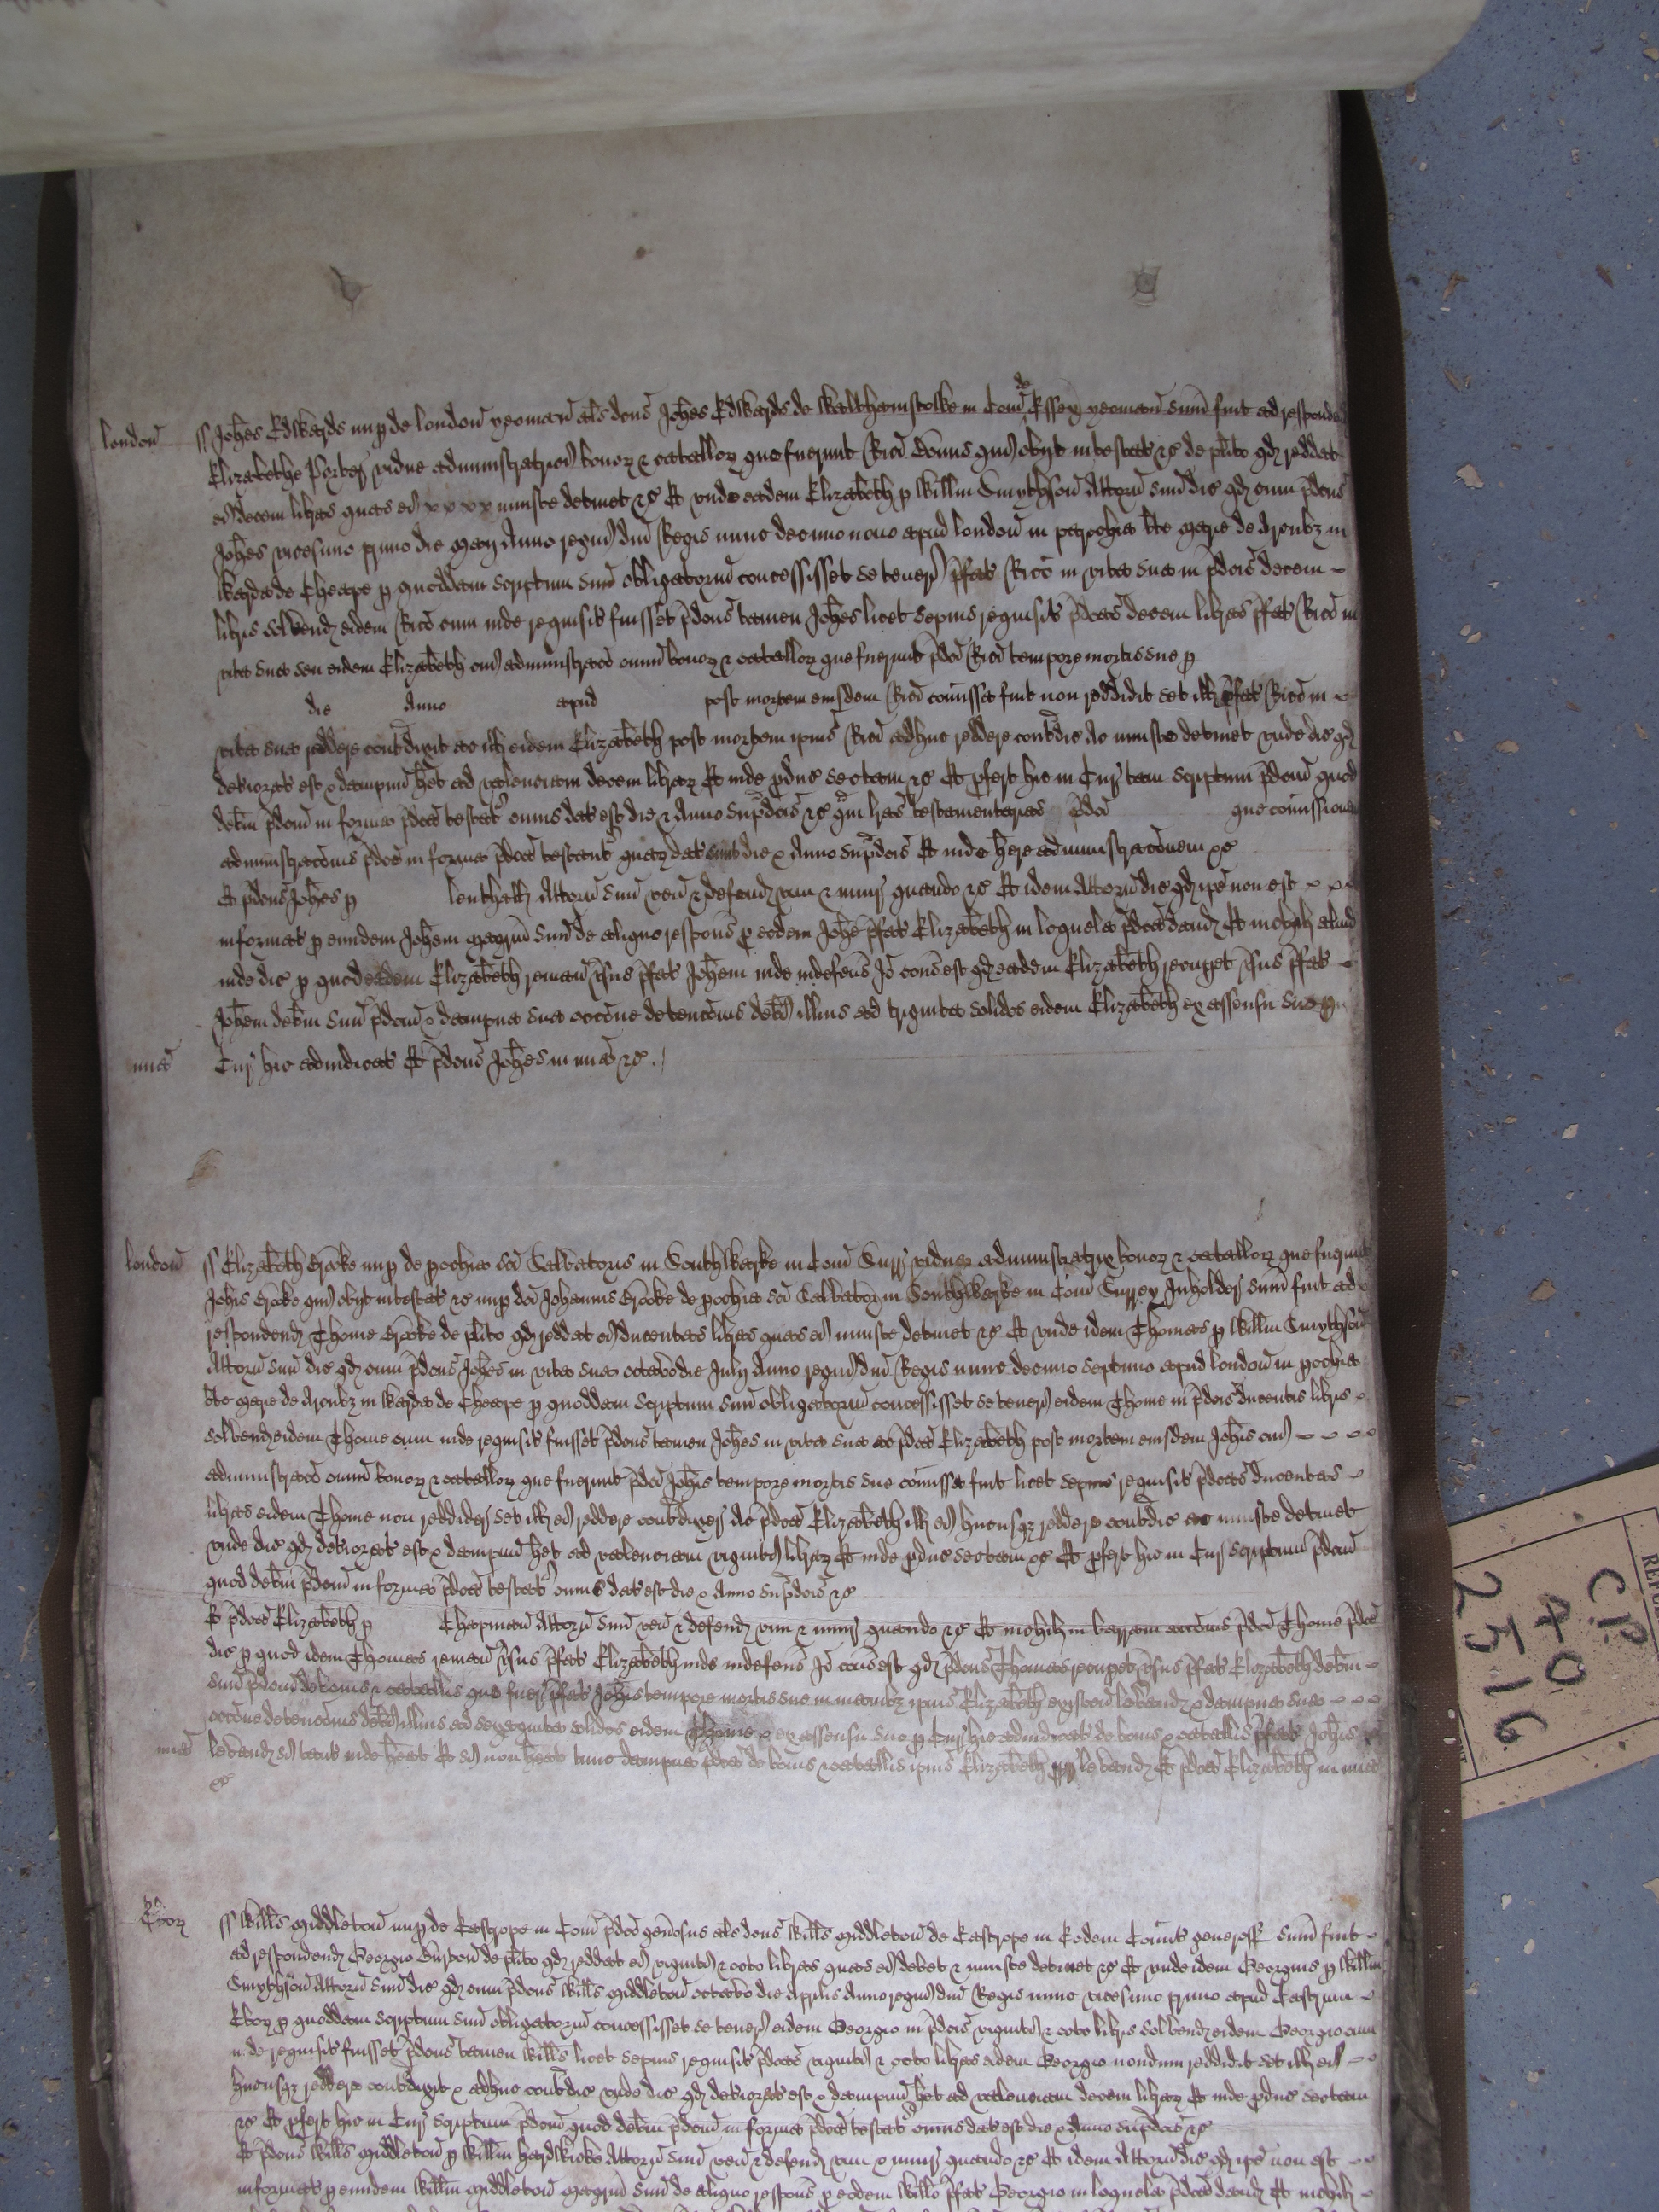 london̄ ss Joh̄es Edwards nup̱ de london̄ yeoman̄ al̄s dc̄us Joh̄es Edwards de Walthamstowe in Com̄ de Essex yeoman̄ sum̄ fuit ad respondend
Elizabethe Porter vidue administratric̄ bonoꝝ & catalloꝝ que fuerunt Ric̄i qui obijt intestat⁹ &c̄ de pl̄ito qd̄ reddat
ei decem libras quas ei iniuste detinet &c̄ Et unde eadem Elizabeth p̱ Will̄m Smythson̄ Attorn̄ suū dic̄ qd̄ cum p̄dc̄us
Joh̄es vicesimo primo die Maij Anno regni dn̄i Regis nunc decimo nono apud london̄ in parochia bt̄e Marie de Arcubȝ in
Warda de Cheape p̱ quoddam scriptum suū obligatoriū concessisset se teneri p̄fat⁹ Ric̄o in vita sua in p̄dc̄is decem
libris solvend̄ eidem Ric̄o cum inde requisit⁹ fuisset p̄dc̄us tamen Joh̄es licet sepius requisit⁹ p̄dc̄as decem libras p̄fat⁹ Ric̄o in
vita sua seu eidem Elizabeth cui administrac̄o omniū bonoꝝ & catalloꝝ que fuerunt p̄dc̄i Ric̄i tempore mortis sue p̱
die Anno apud post mortem eiusdem Ric̄i com̄issa fuit non reddidit set ill̄ p̄fat⁹ Ric̄o in
vita sua reddere contdixit ac ill̄ eidem Elizabeth post mortem ip̄ius Ric̄i adhuc reddere contdic̄ Ac iniuste detinet unde dic̄ qd̄
deteriorat⁹ est & dampnū h̄et ad valenciam decem libraꝝ Et inde p̱duc̄ sectam &c̄ Et p̱fert hic in Cur̄ tam scriptum p̄dc̄um quod
debm̄ p̄dc̄um in forma p̄dc̄a testat⁹ cuius dat⁹ est die & Anno sup̄dc̄is &c̄ qm̄ lr̄as testamentarias p̄dc̄i que com̄issionem
administrac̄onis p̄dc̄e in forma p̄dc̄a testant⁹ quaꝝ dat⁹ sunt die & Anno sup̄dc̄is Et inde h̄ere administrac̄onem &c̄
Et p̄dc̄us Joh̄es p̱ lenthall Attorn̄ suū ven̄ & defend̄ vim & iniur̄ quando &c̄ Et idem Attorn̄ dic̄ qd̄ ip̄e non est
informat⁹ p̱ eundem Joh̄em magr̄um suū de aliquo respons̄ p̱ eodem Joh̄e p̄fat⁹ Elizabeth in loquela p̄dc̄a dand̄ Et nichil aliud
inde dic̄ p̱ quod eadem Elizabeth reman̄ v̄sus p̄fat⁹ Joh̄em inde indefens̄ Iō cons̄ est qd̄ eadem Elizabeth recuperet v̄sus p̄fat⁹
Joh̄em debm̄ suū p̄dc̄um & dampna sua occ̄one detenc̄onis debi illius ad triginta solidos eidem Elizabeth ex assensu suo p̱
mi͞a Cur̄ hic adiudicat⁹ Et p̄dc̄us Joh̄es in mi͞a &c̄
london̄ ss Elizabeth Brooke nup̱ de p̱ochia sc̄i Salvatoris in Southwarke in Com̄ Surr̄ vidua administratrix bonoꝝ & catalloꝝ que fuerunt
Joh̄is Brooke qui obijt intestat⁹ &c̄ nup̱ dc̄i Johannis Brooke de p̱ochia sc̄i Salvator in Southwarke in Com̄ Surrey Inholder sum̄ fuit ad
respondend̄ Thome Brooke de pl̄ito qd̄ reddat ei ducentas libras quas ei iniuste detinet &c̄ Et unde idem Thomas p̱ Will̄m Smythson̄
Attorn̄ suū dic̄ qd̄ cum p̄dc̄us Joh̄es in vita sua octavo die Julij Anno regni dn̄i Regis nunc decimo septimo apud london̄ in p̱ochia
bt̄e Marie de Arcubȝ in Warda de Cheape p̱ quoddam scriptum suū obligatoriū concessisset se teneri eidem Thome in p̄dc̄is ducentis libris
solvend̄ eidem Thome cum inde requisit⁹ fuisset p̄dc̄us tamen Joh̄es in vita sua ac p̄dc̄a Elizabeth post mortem eiusdem Joh̄is cui
administrac̄o omniū bonoꝝ & catalloꝝ que fuerunt p̄dc̄i Joh̄is tempore mortis sue com̄issa fuit licet sepius requisit⁹ p̄dc̄as ducentas
libras eidem Thome non reddider̄ set ill̄ ei reddere contdixer̄ Ac p̄dc̄a Elizabeth ill̄ ei hucusqȝ reddere contdic̄ ac iniuste detinet
unde dic̄ qd̄ deteriorat⁹ est & dampnū h̄et ad valenciam viginti libraꝝ Et inde p̱duc̄ sectam &c̄ Et p̱fert hic in Cur̄ scriptum p̄dc̄um
quod debm̄ p̄dc̄um in forma p̄dc̄a testat⁹ cuius dat⁹ est die & Anno sup̄dc̄is &c̄
Et p̄dc̄a Elizabeth p̱ Chapman̄ Attorn̄ suū ven̄ & defend̄ vim & iniur̄ quando &c̄ Et nichil in barram acc̄onis p̄dc̄e Thome p̄dc̄i
dic̄ p̱ quod idem Thomas reman̄ v̄sus p̄fat⁹ Elizabeth inde indefens̄ Iō cons̄ est qd̄ p̄dc̄us Thomas recuperet v̄sus p̄fat⁹ Elizabeth debm̄
suū p̄dc̄um de bonis & catallis que fuer̄ p̄fat⁹ Joh̄is tempore mortis sue in manibȝ ip̄ius Elizabeth existen̄ levand̄ & dampna sua
occ̄one detenc̄onis debi illius ad sexaginta solidos eidem Thome ex assensu suo p̱ Cur̄ hic adiudicat⁹ de bonis & catallis p̄fat⁹ Joh̄is
mi͞a levand̄ si tant⁹ inde h̄eat Et si non h̄eat tunc dampna p̄dc̄a de bonis & catallis ip̄ius Elizabeth levand̄ Et p̄dc̄a Elizabeth in mi͞a
&c̄
Eboꝝ ss Will̄s Middleton̄ nup̱ de Eastrope in Com̄ p̄dc̄o gen̄osus al̄s dc̄us Will̄s Middleton̄ de Eastrope in Eodem Comit⁹ geneross̄ sum̄ fuit
ad respondend̄ Georgio Burton̄ de pl̄ito qd̄ reddat ei viginti & octo libras quas ei debet & iniuste detinet &c̄ Et unde idem Georgius p̱ Will̄m
Smythson̄ Attorn̄ suū dic̄ qd̄ cum p̄dc̄us Will̄s Middleton̄ octavo die Aprilis Anno regni dn̄i Regis nunc vicesimo primo apud Castrum
Eboꝝ p̱ quoddam scriptum suū obligatoriū concessisset se teneri eidem Georgio in p̄dc̄is viginti & octo libris solvend̄ eidem Georgio cum
inde requisit⁹ fuisset p̄dc̄us tamen Will̄s licet sepius requisit⁹ p̄dc̄as viginti & octo libras eidem Georgio nondum reddidit set ill̄ ei
hucusqȝ reddere contdixit & adhuc contdic̄ unde dic̄ qd̄ deteriorat⁹ est & dampnū h̄et ad valenciam decem libraꝝ Et inde p̱duc̄ sectam
&c̄ Et p̱fert hic in Cur̄ scriptum p̄dc̄um quod debm̄ p̄dc̄um in forma p̄dc̄a testat⁹ cuius dat⁹ est die & Anno sup̄dc̄is &c̄
Et p̄dc̄us Will̄s Middleton̄ p̱ Will̄m Hardwicke Attorn̄ suū ven̄ & defend̄ vim & iniur̄ quando &c̄ Et idem Attorn̄ dic̄ qd̄ ip̄e non est
informat⁹ p̱ eundem Will̄m Middleton̄ magr̄um suū de aliquo respons̄ p̱ eodem Will̄o p̄fat⁹ Georgio in loquela p̄dc̄a dand̄ Et nichil
CP
40
2516